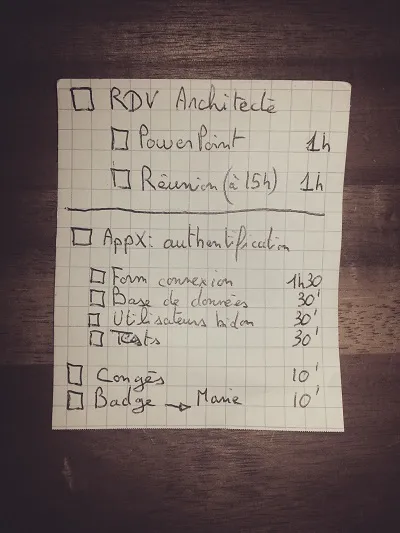 RDV Architecte
PowerPoint 1h
Réunion (à 15h) 1h
AppX: authentification
Form connexion 1h30
Base de données 30'
Utilisateurs bidon 30'
Tests 30'
Congés 10'
Badge → Marie 10'